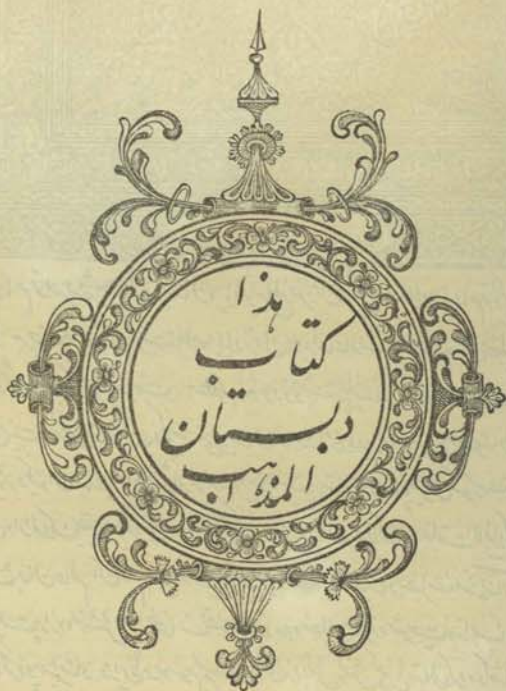 هذا
كتاب
دبستان
المذاهب